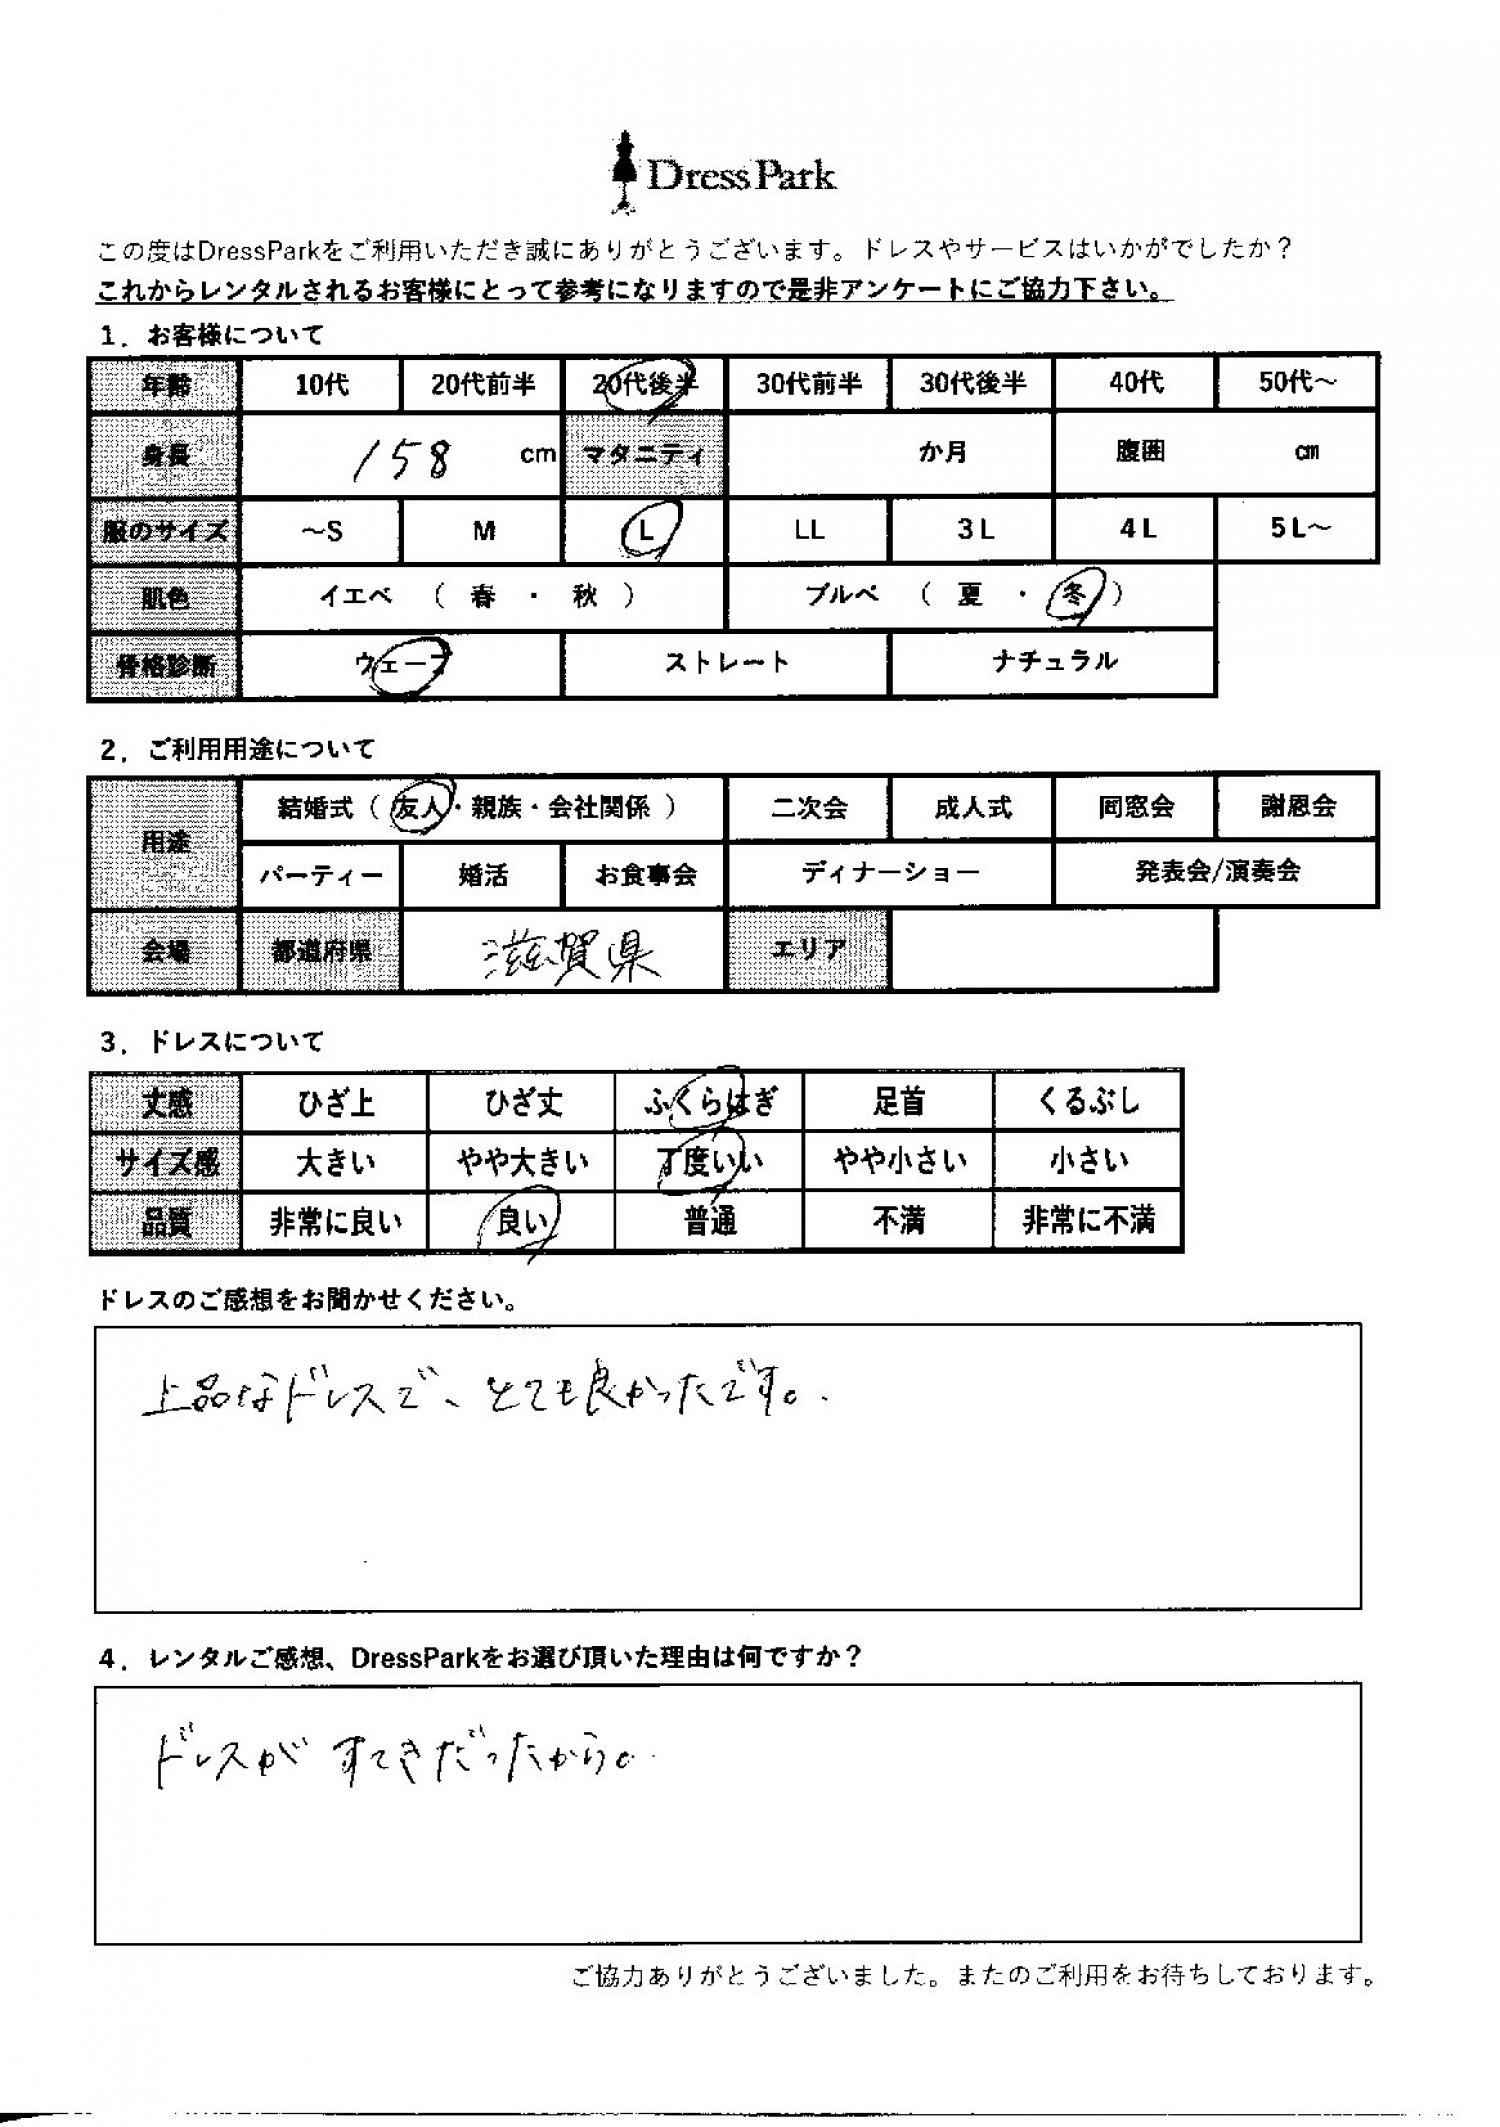 DressPark
この度はDressParkをご利用いただき誠にありがとうございます。ドレスやサービスはいかがでしたか？
これからレンタルされるお客様にとって参考になりますので是非アンケートにご協力下さい。
1．お客様について
年齢 10代 20代前半 20代後半 30代前半 30代後半 40代 50代～
身長 158 cm マタニティ か月 腹囲 cm
服のサイズ ～S M L LL 3L 4L 5L～
肌色 イエベ （ 春 ・ 秋 ） ブルベ （ 夏 ・ 冬 ）
骨格診断 ウェーブ ストレート ナチュラル
2．ご利用用途について
用途 結婚式（ 友人・親族・会社関係 ） 二次会 成人式 同窓会 謝恩会
パーティー 婚活 お食事会 ディナーショー 発表会/演奏会
会場 都道府県 滋賀県 エリア
3．ドレスについて
丈感 ひざ上 ひざ丈 ふくらはぎ 足首 くるぶし
サイズ感 大きい やや大きい 丁度いい やや小さい 小さい
品質 非常に良い 良い 普通 不満 非常に不満
ドレスのご感想をお聞かせください。
上品なドレスで、とても良かったです。
4．レンタルご感想、DressParkをお選び頂いた理由は何ですか？
ドレスがすてきだったから。
ご協力ありがとうございました。またのご利用をお待ちしております。